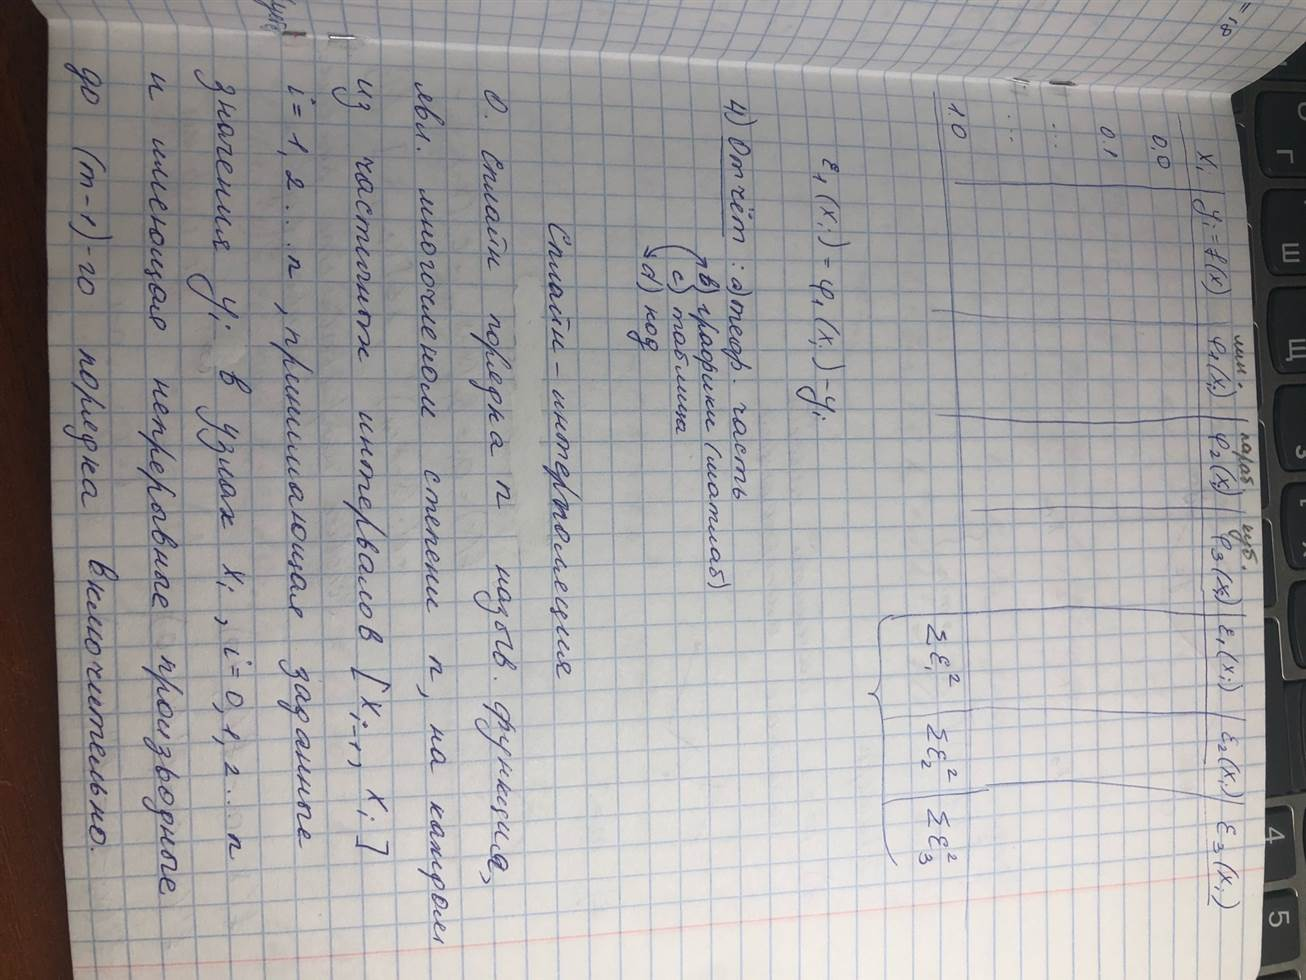 лин. параб куб.
xᵢ | yᵢ = f(x) | φ₁(xᵢ) | φ₂(xᵢ) | φ₃(xᵢ) | ε₁(xᵢ) | ε₂(xᵢ) | ε₃(xᵢ)
0,0
0.1
...
...
1.0 Σεᵢ² | Σε₂² | Σε₃²
ε₁(xᵢ) = φ₁(xᵢ) – yᵢ
4) Отчёт: а) теор. часть
в) графики (матлаб)
с) таблица
d) код
Сплайн – интерполяция
О. Сплайн порядка n назыв. функция,
явл. многочленом степени n, на каждом
из частичных интервалов [xᵢ₋₁, xᵢ]
i = 1, 2 ... n, принимающая заданные
значения yᵢ в узлах xᵢ, i = 0, 1, 2 ... n
и имеющая непрерывные производные
до (m–1)-го порядка включительно.
Ш
Щ
4
5